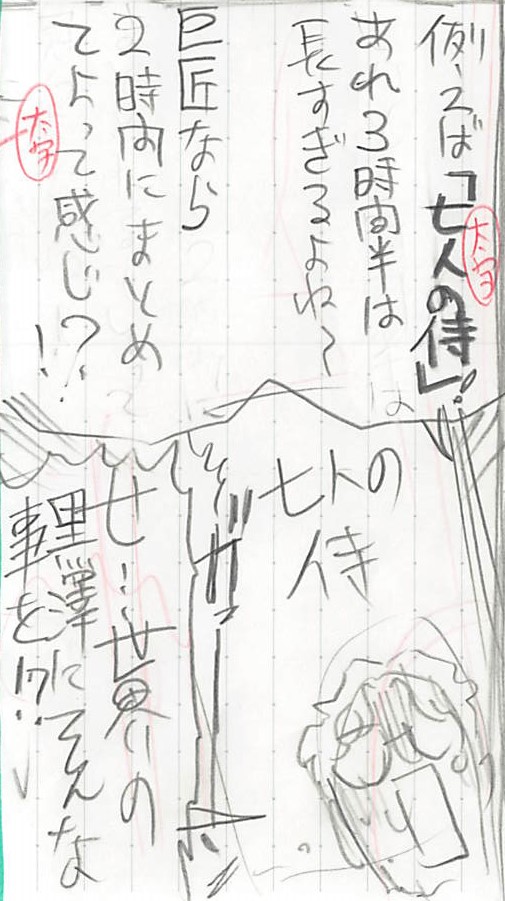 例えば「七人の侍」!
太字
あれ3時間半は
長すぎるよね〜
巨匠なら
2時間にまとめ
てよって感じ!?
太字
七人の
侍
ガーン
せ…世界の
黒澤にそんな
事を!?